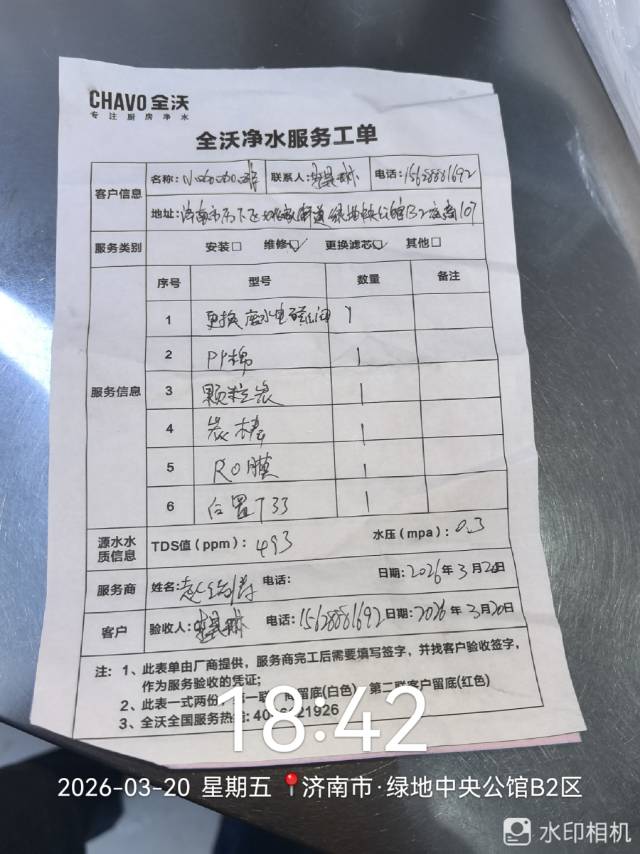 CHAVO 全沃
专注厨房净水
全沃净水服务工单
客户信息
名称: 联系人: 电话:15628881692
地址:济南市历下区姚家街道绿地中央公馆B2底商107
服务类别 安装□ 维修☑ 更换滤芯☑ 其他□
服务信息
序号 型号 数量 备注
1 更换废水电磁阀 1
2 PP棉 1
3 颗粒炭 1
4 炭棒 1
5 RO膜 1
6 后置T33 1
源水水质信息 TDS值(ppm):493 水压(mpa):0.3
服务商 姓名: 电话: 日期:2026年3月20日
客户 验收人: 电话:15628881692 日期:2026年3月20日
注:1、此表单由厂商提供,服务商完工后需要填写签字,并找客户验收签字,
作为服务验收的凭证;
2、此表一式两份,第一联 商留底(白色) 第二联客户留底(红色)
3、全沃全国服务热线:
18:42
2026-03-20 星期五 济南市·绿地中央公馆B2区
水印相机